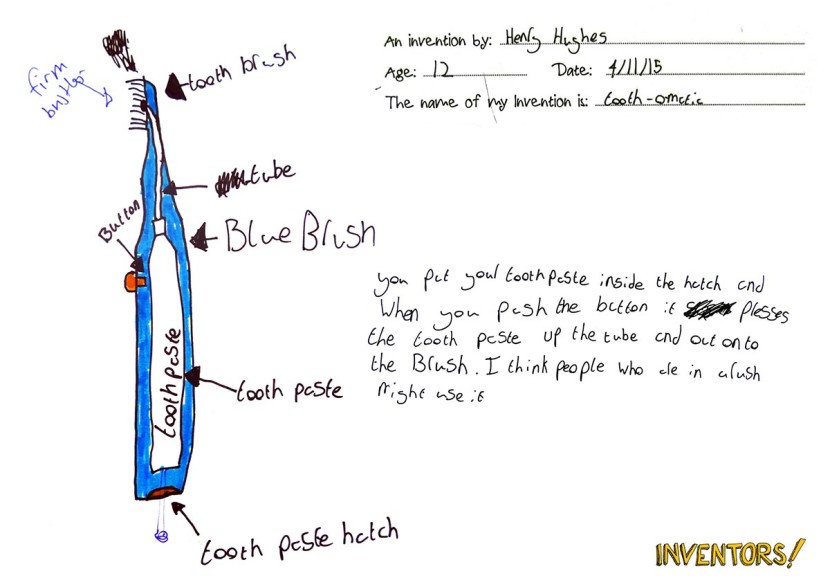 An invention by: Henry Hughes
Age: 12 Date: 4/11/15
The name of my Invention is: tooth-omatic
firm
bristles
tooth brush
tube
Button
Blue Brush
you put your toothpaste inside the hatch and
When you push the button it presses
the tooth paste up the tube and out onto
the Brush. I think people who are in a rush
Might use it
toothpaste
tooth paste
tooth paste hatch
INVENTORS!